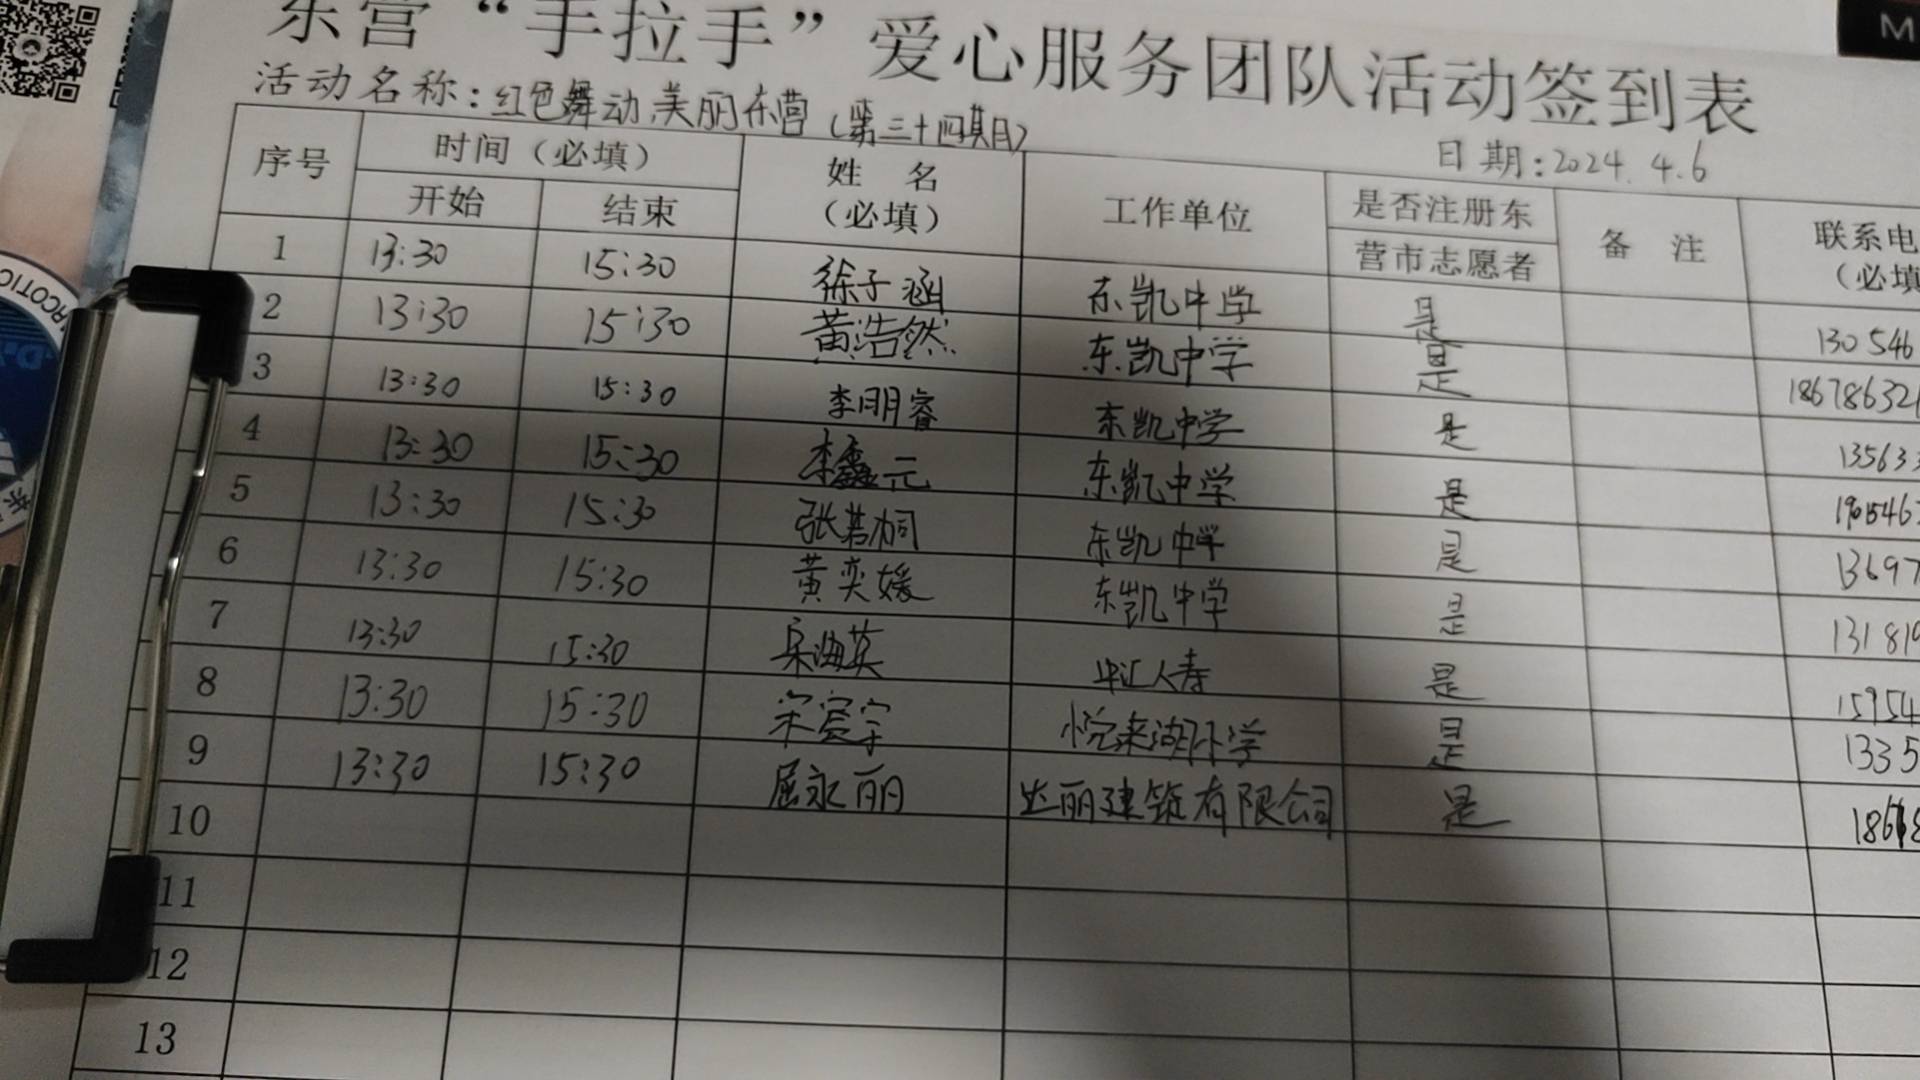 东营“手拉手”爱心服务团队活动签到表
活动名称：红色舞动，美丽东营（第三十四期）
日期：2024.4.6
序号 时间（必填） 姓名（必填） 工作单位 是否注册东营市志愿者 备注 联系电 （必填
开始 结束
1 13:30 15:30 徐子涵 东凯中学 是 130546
2 13:30 15:30 黄浩然 东凯中学 是 186786321
3 13:30 15:30 李明睿 东凯中学 是 13563
4 13:30 15:30 李鑫元 东凯中学 是 1901546
5 13:30 15:30 张若桐 东凯中学 是 13697
6 13:30 15:30 黄奕媛 东凯中学 是 131819
7 13:30 15:30 宋海英 中汇人寿 是 15954
8 13:30 15:30 宋宸宇 悦来湖小学 是 1335
9 13:30 15:30 屈永丽 丽建筑有限公司 是
10
11
12
13
M